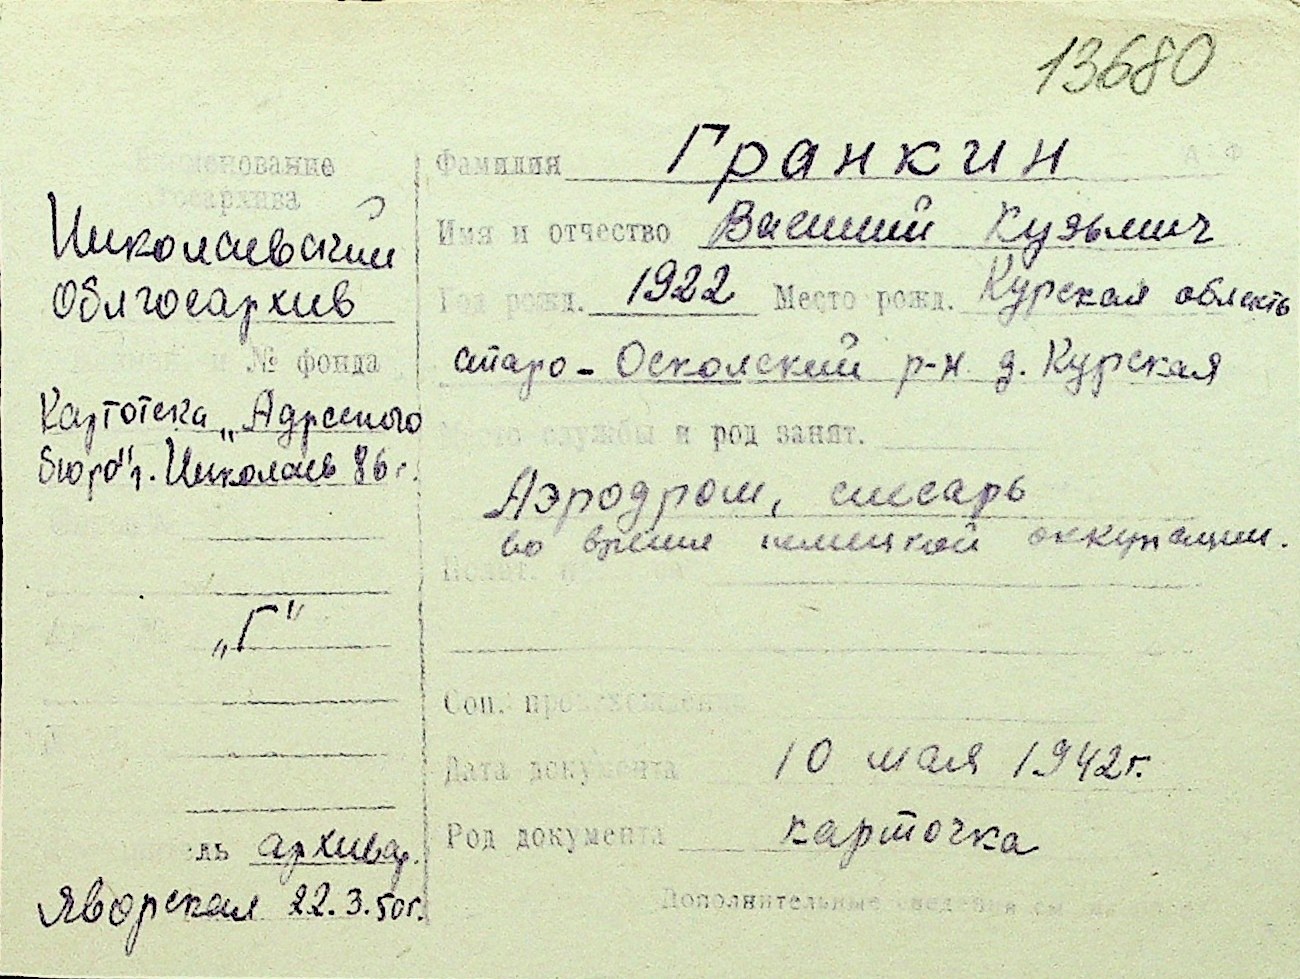 13680
Наименование
Госархива
Николаевский
Облгосархив
и № фонда
Картотека „Адресного
бюро" г. Николаев 86 г.
„Г"
архивар.
Яворская 22.3.50г.
Фамилия Гранкин
Имя и отчество Василий Кузьмич
Год рожд. 1922 Место рожд. Курская область
старо-Оскольский р-н д. Курская
Место службы и род занят.
Аэродром, слесарь
во время немецкой оккупации.
Соц. происхождение
Дата документа 10 мая 1942г.
Род документа карточка
Дополнительные сведения см. на